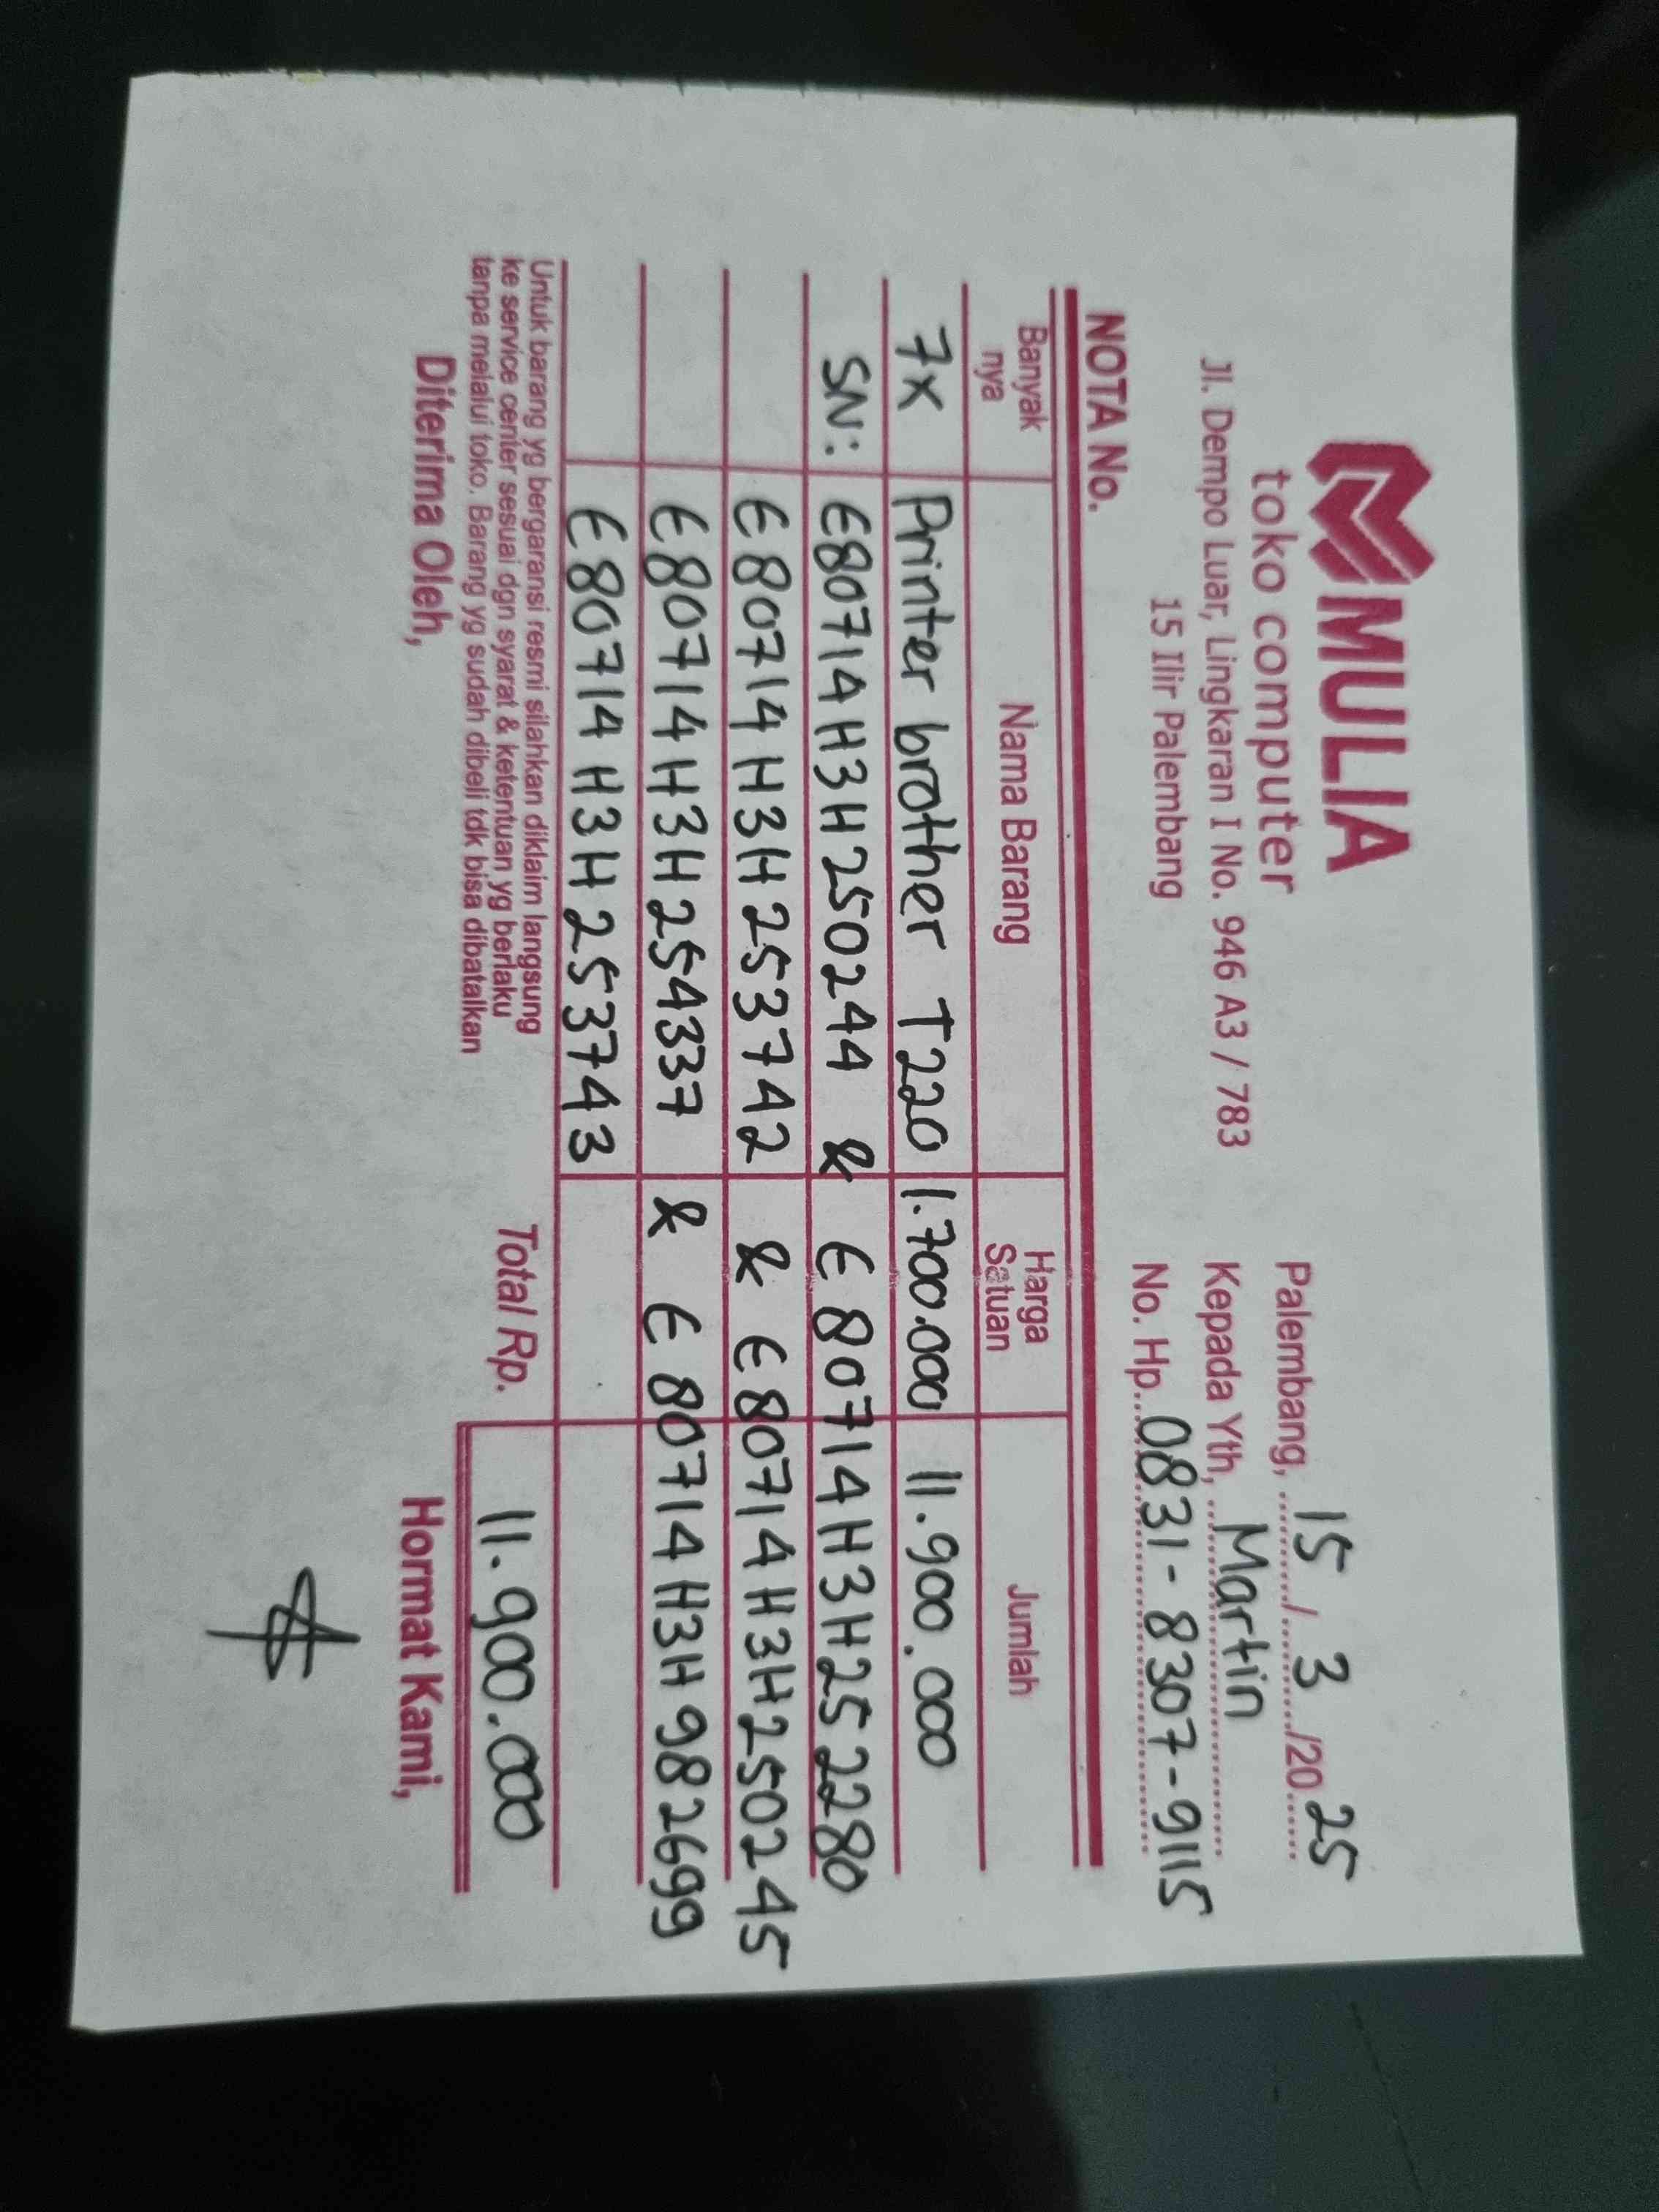 MULIA
toko computer
Jl. Dempo Luar, Lingkaran I No. 946 A3 / 783
15 Ilir Palembang
Palembang, 15 / 3 /20 25
Kepada Yth, Martin
No. Hp. 0831-8307-9115
NOTA No.
Banyak nya Nama Barang Harga Satuan Jumlah
7x Printer brother T220 1.700.000 11.900.000
SN: E80714H3H250244 & E80714H3H252280
E80714H3H253742 & E80714H3H250245
E80714H3H254337 & E80714H3H982699
E80714H3H253743
Untuk barang yg bergaransi resmi silahkan diklaim langsung
ke service center sesuai dgn syarat & ketentuan yg berlaku
tanpa melalui toko. Barang yg sudah dibeli tdk bisa dibatalkan
Total Rp. 11.900.000
Diterima Oleh, Hormat Kami,